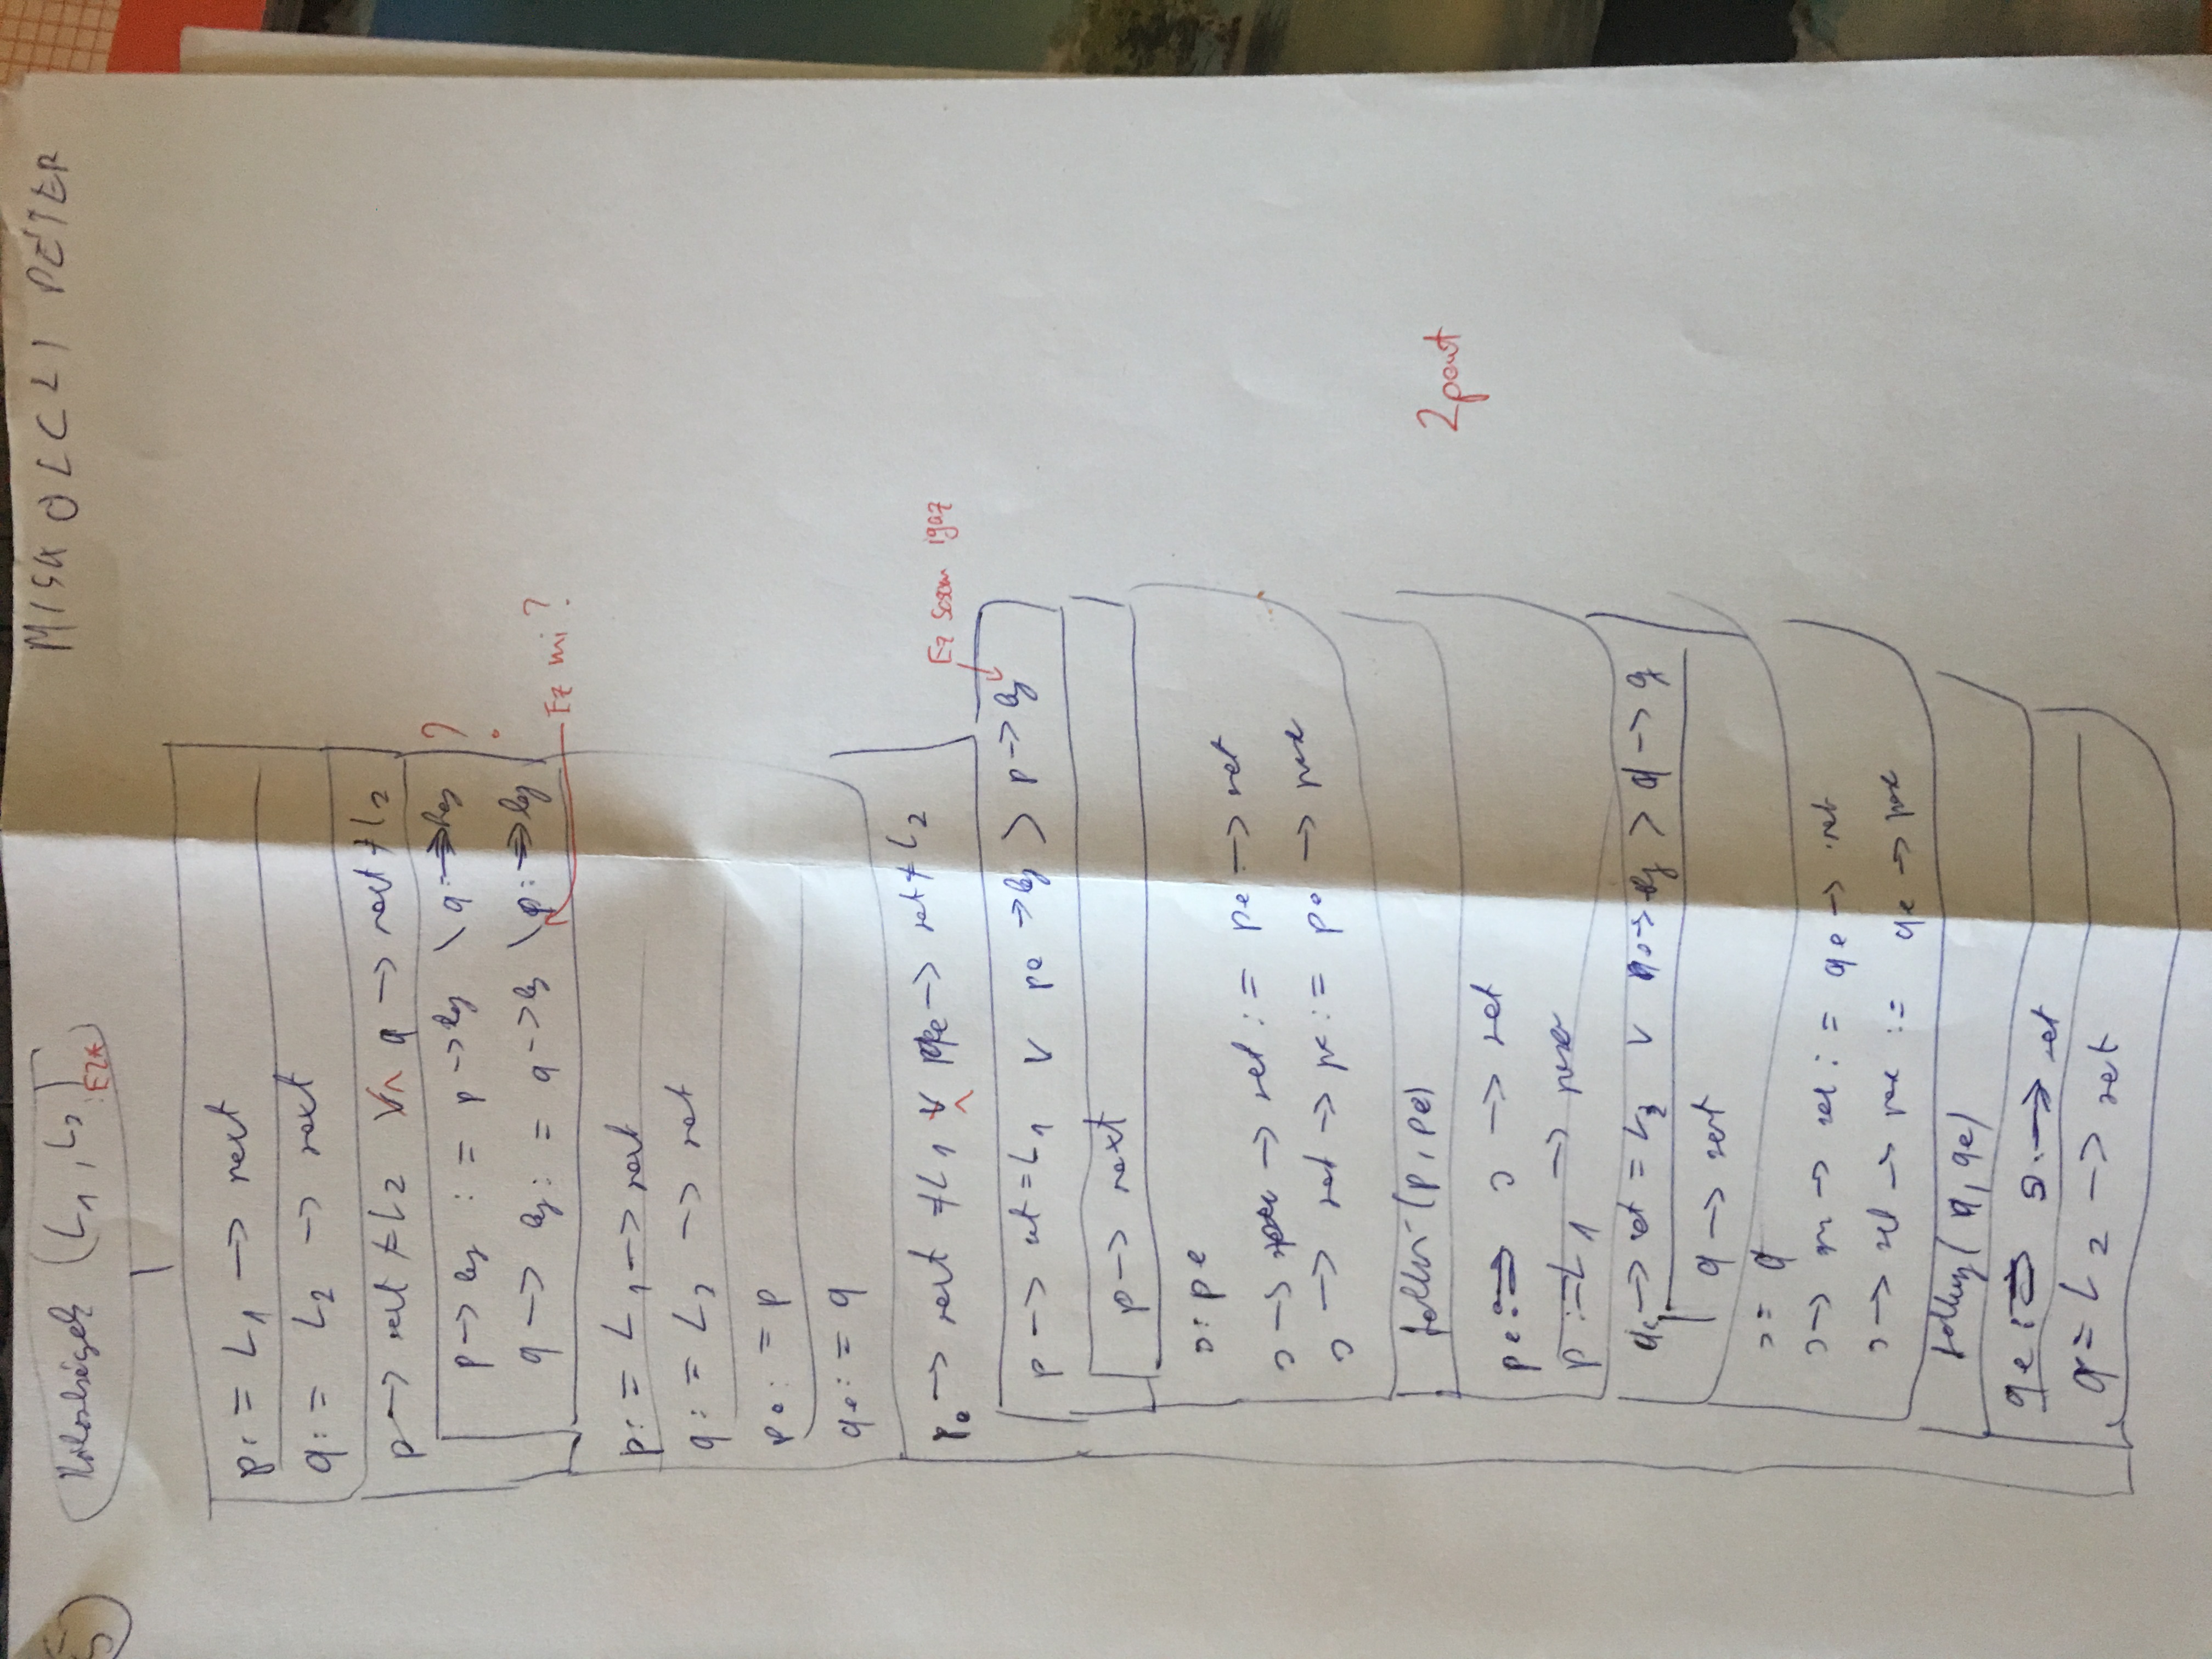 5
(L1, L2) : E2*
MISKOLCZI PÉTER
p := L1 -> next
q := L2 -> next
p -> next ≠ L2 V ∧ q -> next ≠ L2
p -> key := p -> key \ q -> key ?
q -> key := q -> key \ p -> key
Ez mi?
p := L1 -> next
q := L2 -> next
pe := p
qe := q
pe -> next ≠ L1 V ∧ qe -> next ≠ L2
Ez sosem igaz
p -> next = L1 V pe -> key > p -> key
p -> next
s: pe
s -> prev -> next := pe -> next
s -> next -> prev := pe -> prev
(p, pe)
2 pont
pe := s -> next
p := L1 ->
q -> next = L2 V qe -> key > q ->
q -> next
s = q
s -> -> next := qe -> next
s -> next -> prev := qe -> prev
(q, qe)
qe := s -> next
q = L2 -> next